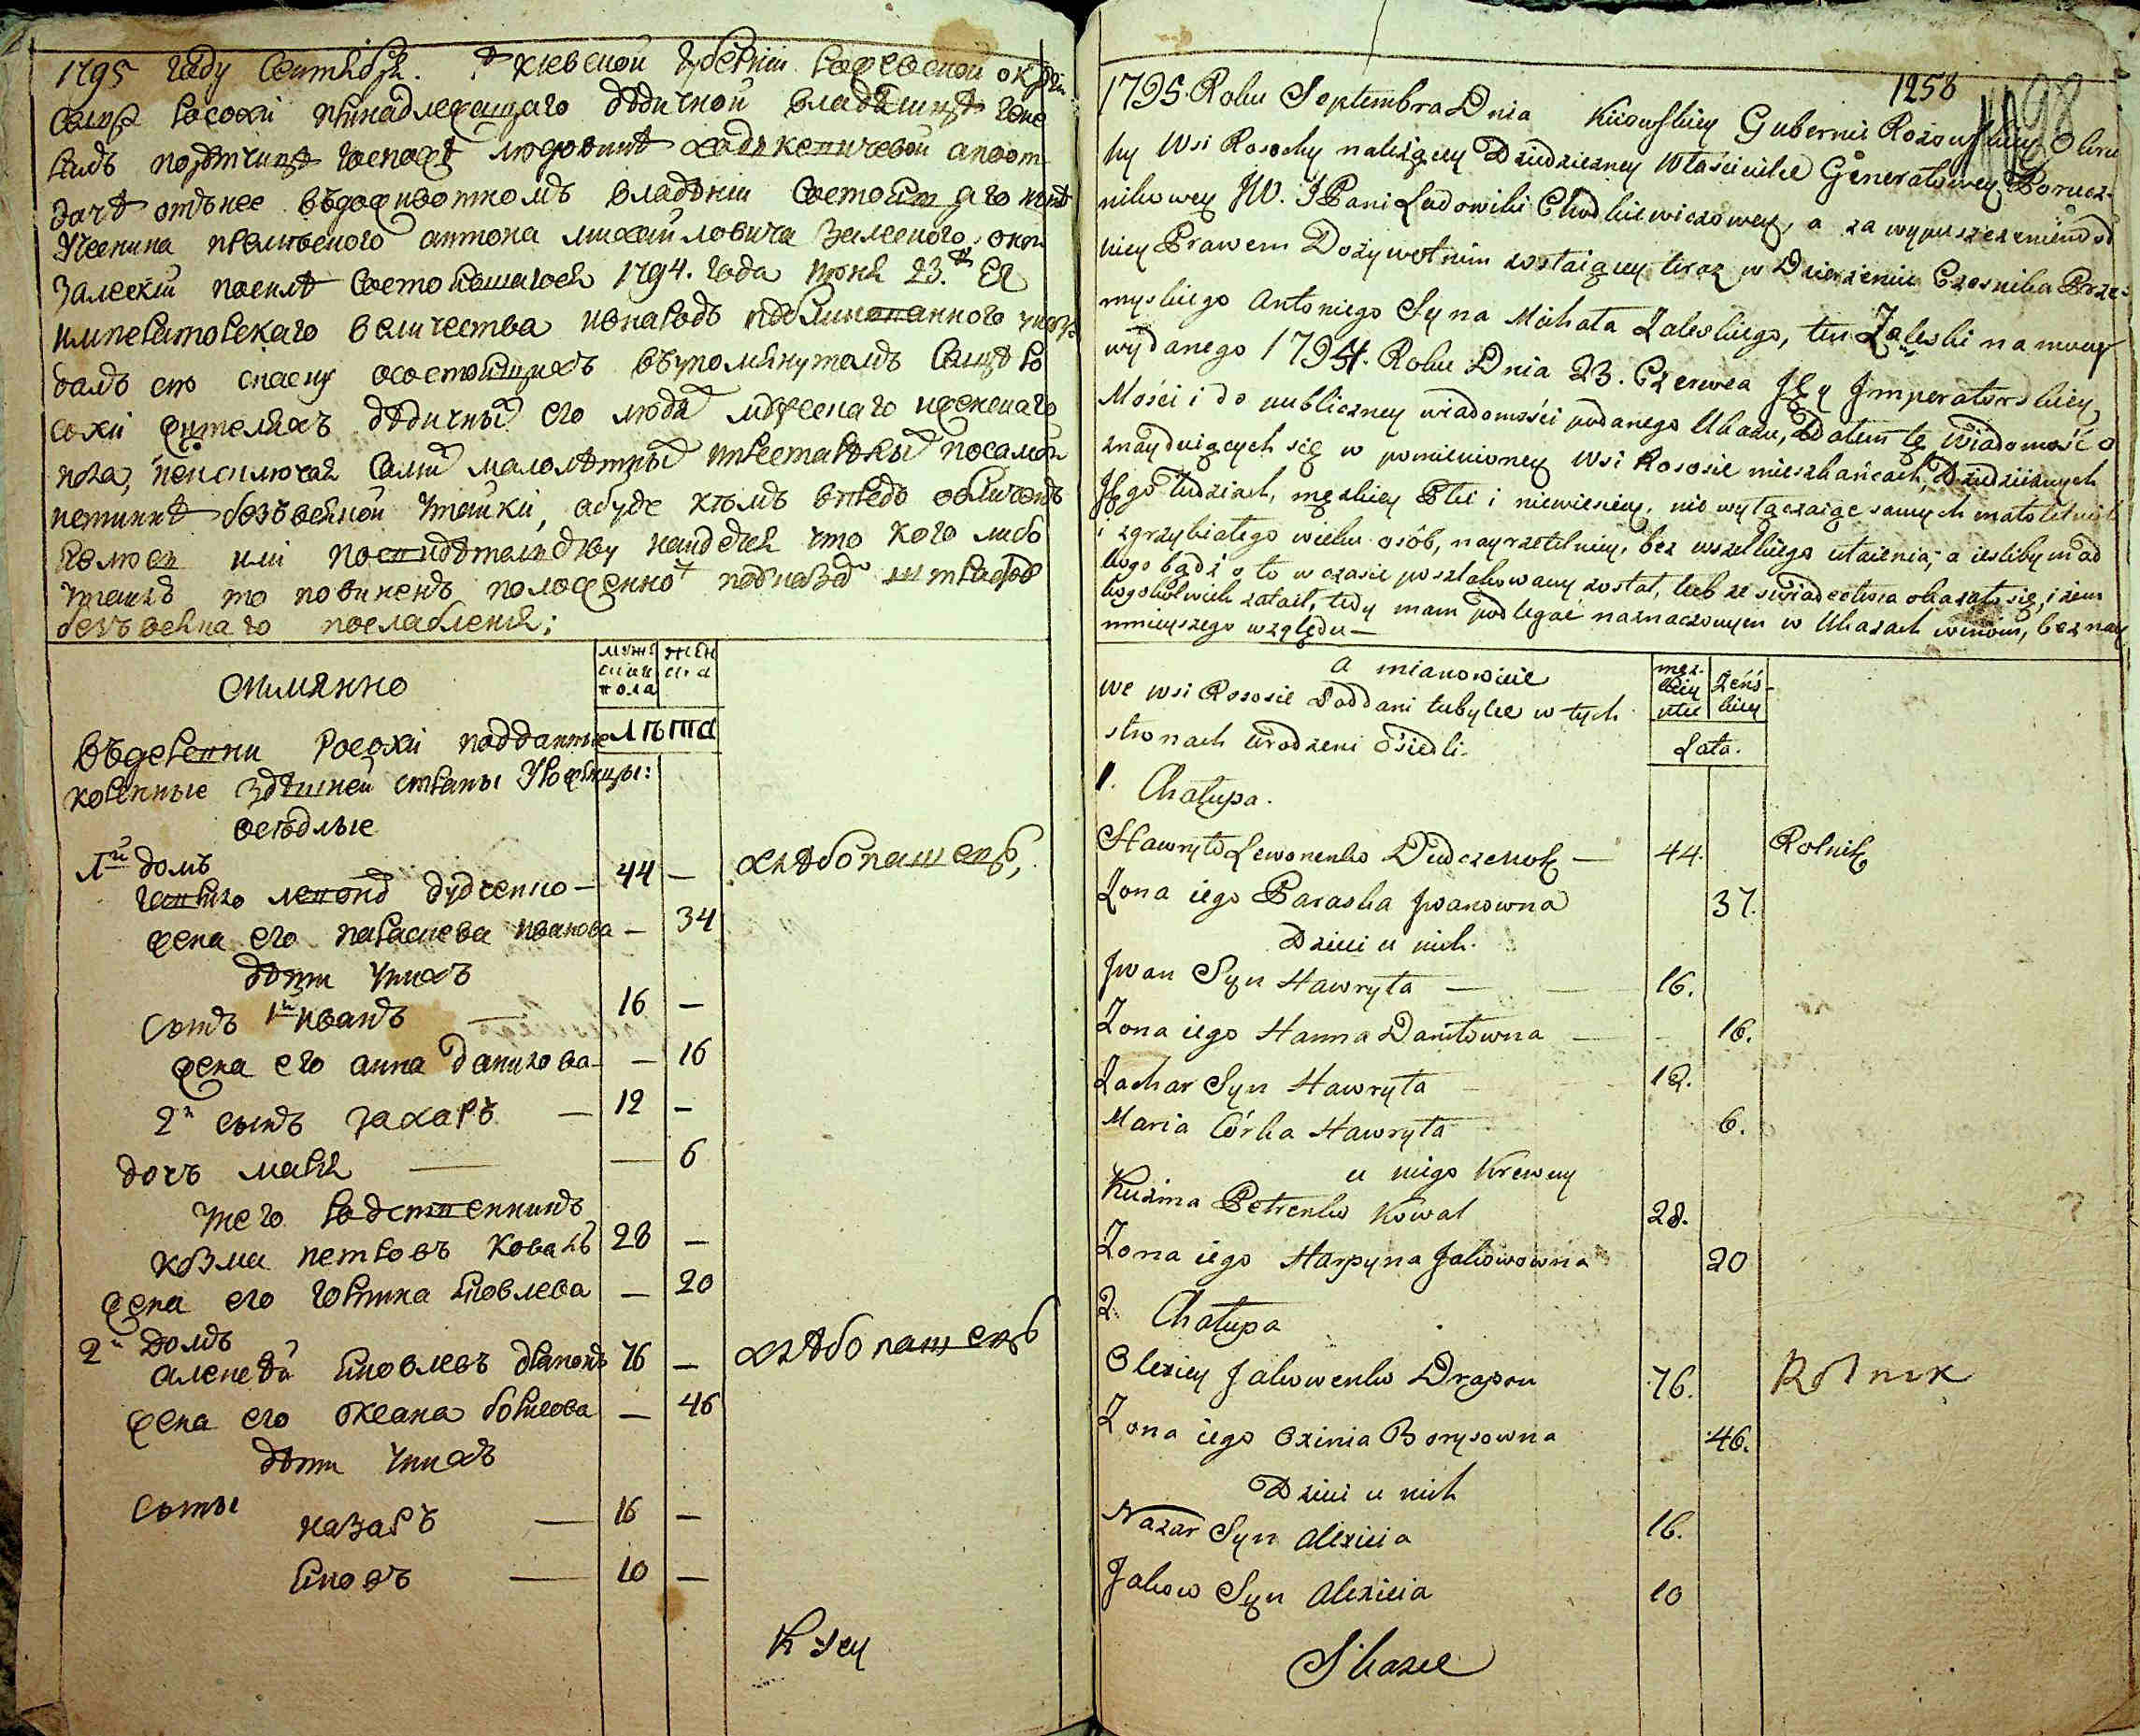 1795 году Сентября. В Киевской губернии Рожевской округи
Села Росохи принадлежащаго дѣдичной владѣлицѣ гене
ралъ порутчицѣ госпожѣ людовикѣ ходкевичевой апоот
дачѣ отънее въдоживотномъ владѣнии Состоящаго
Чесника премысского антона михайловича Залеского,
Залеский посилѣ Состоявшагося 1794. года июня 23. Ея
императорскаго величества ивнародъ публикованного указа
далъ сию сказку осостоящихъ въупомянутомъ Селѣ Ро
сохи жителяхъ дѣдичныхъ его людей мужескаго иженскаго
пола, неисключая Самыхъ малолѣтныхъ ипрестарѣлыхъ посамой
истиннѣ безъвсякой утайки, абуде кѣмъ впредь обличенъ
или посвидѣтелству найдется что кого либо
утаилъ то повиненъ положенной поуказамъ штрафъ
безъвсякаго послабления;
Аимянно
муже
ска
пола
жен
ска
лѣта
Въдеревни Росохи подданные
коренные здѣшней страны уроженцы:
осѣдлые
1й домъ
гаврило левоновъ дудченко — 44 — хлѣбопашецъ,
жена его парасиева иванова — 34
дѣти унихъ
сынъ 1й иванъ 16 —
жена его анна данилова — 16
2й сынъ захаръ — 12 —
дочь мария — — 6
унего родственникъ
козма петровъ коваль 28 —
жена его горпина яковлева — 20
2й домъ
алексѣй яковлевъ драпонъ 76 — хлѣбопашецъ
жена его оксана борисова — 46
дѣти унихъ
Сыны
назаръ — 16 —
яковъ — 10 —
1258
98
1795. Roku Septembra Dnia Kiiowskiey Gubernii Rożowskiey Okru
hy Wsi Rosochy należącey Dziedziczney Właścicielce Generałowey Porucz-
nikowey JW. JPani Ludowiki Chodkiewiczowey, a za wypuszczeniem od
niey Prawem Dożywotnim zostaiącey teraz w Dzierżeniu Czesnika Prze-
myskiego Antoniego Syna Michała Zaleskiego, ten Zaleski na mocy
wydanego 1794. Roku Dnia 23. Czerwca Jey Jmperatorskiey
Mości i do publiczney wiadomości podanego Ukazu, Dałem tę wiadomość o
znayduiących się w pomienioney Wsi Rososie mieszkańcach, Dziedzicznych
Jego ludziach, męzkiey Płci i niewiesciey, nie wyłączaiąc samych małoletnich
i zgrzybiałego wieku osób, nayrzetelniey, bez wszelkiego utaienia, a iesliby mad
kogo bądź o to w czasie poszlakowany został, lub ze swiadectwa okazało się, iżem
kogokolwiek zataił, tedy mam podlegać naznaczonym w Ukazach winom, bez nay
mnieyszego względu —
a mianowicie
męz-
kiey
płci
Zeńs-
kiey
Lata.
we wsi Rososie Poddani tubylce w tych
stronach Urodzeni Osiedli.
1. Chałupa.
Hawryło Lewonenko Dudczenok — 44. Rolnik
Zona iego Paraska Jwanowna 37.
Dzieci u nich.
Jwan Syn Hawryła — 16.
Zona iego Hanna Daniłowna — 16.
Zachar Syn Hawryła 12.
Maria Córka Hawryła 6.
u niego Krewny
Kuzma Petrenko Kowal 28.
Zona iego Harpyna Jakowowna 20
2. Chałupa
Olexiey Jakowenko Drapon 76. Rolnik
Zona iego Oxinia Borysowna 46.
Dzieci u nich
Nazar Syn Alexieia 16.
Jakow Syn Alexieia 10